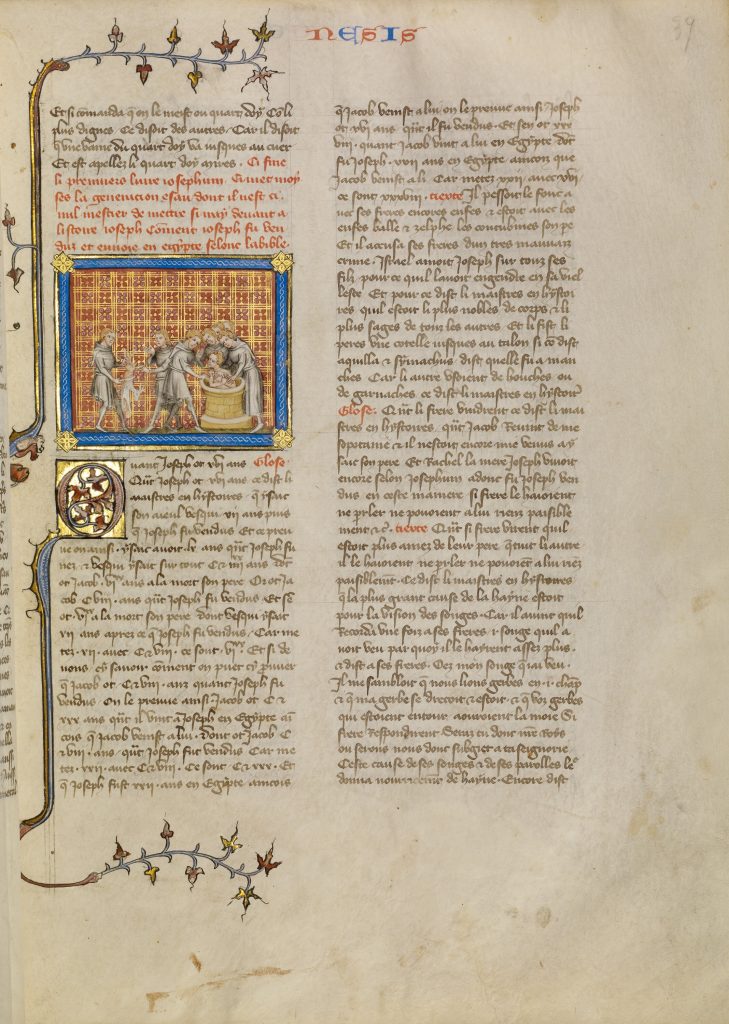 NESIS
39
Et si comanda q̃ on le meist ou quart doy Cōli
plus dignes Ce disoit des autres. Car il disoit
q̃ une vainne du quart doy va iusques au cuer
Et est apellez li quart doy anires. Ci fine
li premiers livre iosephum. Ci met moy
ses la generacion esau dont il nest ci
nul mestier de mettre si may devant a
listoire ioseph Coment ioseph fu ven
duz et envoie en egypte selonc la bible
Quant Joseph ot xvi ans Glose
Qũt Joseph ot xvi ans ce dist li
maistres en hystoires q̃ ysaac
son aieul vesqui xii ans puis
q̃ ioseph fu vendus Et ce preu
ue on ainsi. ysaac avoit lx ans qũt Joseph fu
nez
ot Jacob vi ans a la mort son pere Or ot Ja
cob C viii ans qũt Joseph fu vendus Et se
ot a la mort son pere dont vesqui ysaac
xii ans aprez ce q̃ Joseph fu vendus. Car me
tez xii avec C et viii. ce sont Et si de
vons cy savoir coment on puet cy prouver
q̃ Jacob ot C et viii anz quant Joseph fu
vendus On le preuve ainsi Jacob ot C et
xxx ans qũt il vint a Joseph en Egypte ain
cois q̃ Jacob venist a lui. dont ot Jacob C
et viii ans qũt Joseph fut vendus Car me
tez xxii avec C et viii Ce sont C et xxx Et
q̃ Joseph fust xxii ans en Egypte aincois
q̃ Jacob venist a lui on le preuve ainsi Joseph
ot xvi ans qũt il fu vendus Et sen ot xxx
viii quant Jacob vint a lui en Egypte dont
fu Joseph xxii ans en Egypte aincois que
Jacob venist a li Car metez xxii avec xvi
ce sont xxxviii tieute Il pessoit le fouc a
vec ses freres encores enfes et estoit avec les
enfes balle et zelphe les concubines son pe
Et il accusa ses freres dun tres mauvaiz
crime Israel amoit Joseph sur touz ses
filz pour ce quil lavoit engendre en sa viel
lesse Et pour ce dist li maistres en hystoi
res quil estoit li plus nobles de corps et li
plus sages de touz les autres Et li fist li
peres une cotelle iusques au talon si cō dist
aquilla et symachus dist quelle fu a man
ches Car li autre usoient de houches ou
de garnaches ce dist li maistres en hystoir
Glose. Qũt li frere vindrent ce dist li mai
stres en hystoires qũt Jacob Revint de me
sopotamie et il nestoit encore mie venus a y
saac son pere Et Rachel la mere Joseph vivoit
encore selon Josephum adonc fu Joseph ven
dus en ceste maniere si frere le haioient
ne parler ne povoient a lui rien paisible
ment et c̃ tieute Qũt si frere virent quil
estoit plus amez de leur pere q̃ tuit li autre
il le haioient ne parler ne povoient a lui riez
paisiblemt Ce dist li maistres en hystoires
q̃ la plus grant cause de la hayne estoit
pour la vision des songes Car il avint quil
Recorda une foiz a ses freres i songe quil a
voit veu par quoy il le hayrent assez plus.
et dist a ses freres Oez mon songe q̃ iai veu
Il me sambloit q̃ nous lions gerbes en i champ
et q̃ ma gerbe se drecoit et estoit et q̃ voz gerbes
qui estoient entour aouroient la moie Si
frere Respondirent Seraz tu dont nre Roys
ou serons nous dont subgiet a ta seignorie
Ceste cause de ses songes et de ses parolles le
donna nourrecemt de hayne Encore dist